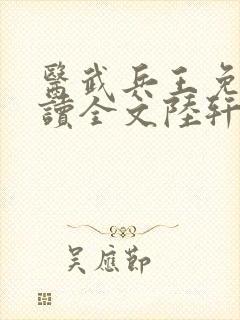 醫武兵王免
讀全文陸軒
吳應節